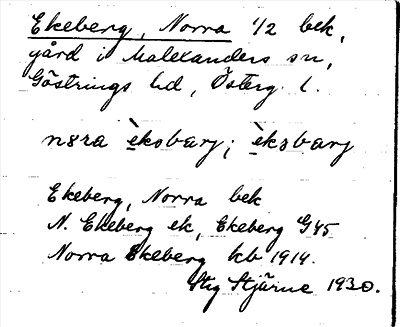 Ekeberg, Norra 1/2 bek,
gård i Malexanders sn,
Göstrings hd, Österg. l.
nɤra èksbærj; èksbærj
Ekeberg, Norra bek
N. Ekeberg ek, Ekeberg G45
Norra Ekeberg kb 1914.
Stig Stjärne 1930.